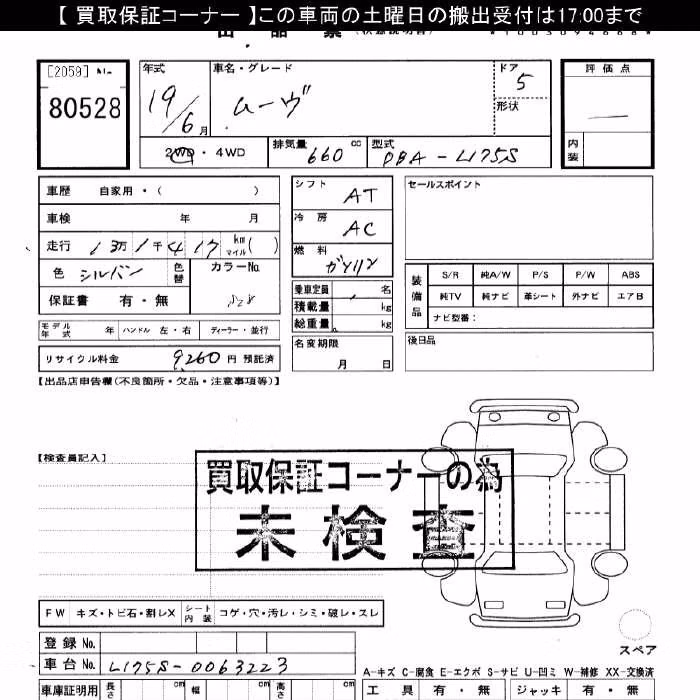 【 買取保証コーナー 】この車両の土曜日の搬出受付は17:00まで
[2059] No.
80528
年式 19/6 月
車名・グレード ムーヴ
ドア 5
形状
評価点 —
内装
2WD・4WD
排気量 660 cc
型式 DBA-L175S
車歴 自家用・( )
車検 年 月
走行 13万1千417 km マイル ( )
色 シルバー 色替
カラーNo.
保証書 有・無
シフト AT
冷房 AC
燃料 ガソリン
乗車定員 名
積載量 kg
総重量 kg
セールスポイント
装備品
S/R 純A/W P/S P/W ABS
純TV 純ナビ 革シート 外ナビ エアB
ナビ型番:
モデル年式 年 ハンドル 左・右 ディーラー・並行
名変期限 月 日
後日品
リサイクル料金 9,260 円 預託済
【出品店申告欄(不良箇所・欠品・注意事項等)】
【検査員記入】
買取保証コーナーの為
未検査
FW キズ・トビ石・割レX シート内装 コゲ・穴・汚レ・シミ・破レ・スレ
スペア
登録 No.
車台 No. L175S-0063223
A-キズ C-腐食 E-エクボ S-サビ U-凹ミ W-補修 XX-交換済
車庫証明用 長さ cm 幅 cm 高さ cm
工具 有・無 ジャッキ 有・無